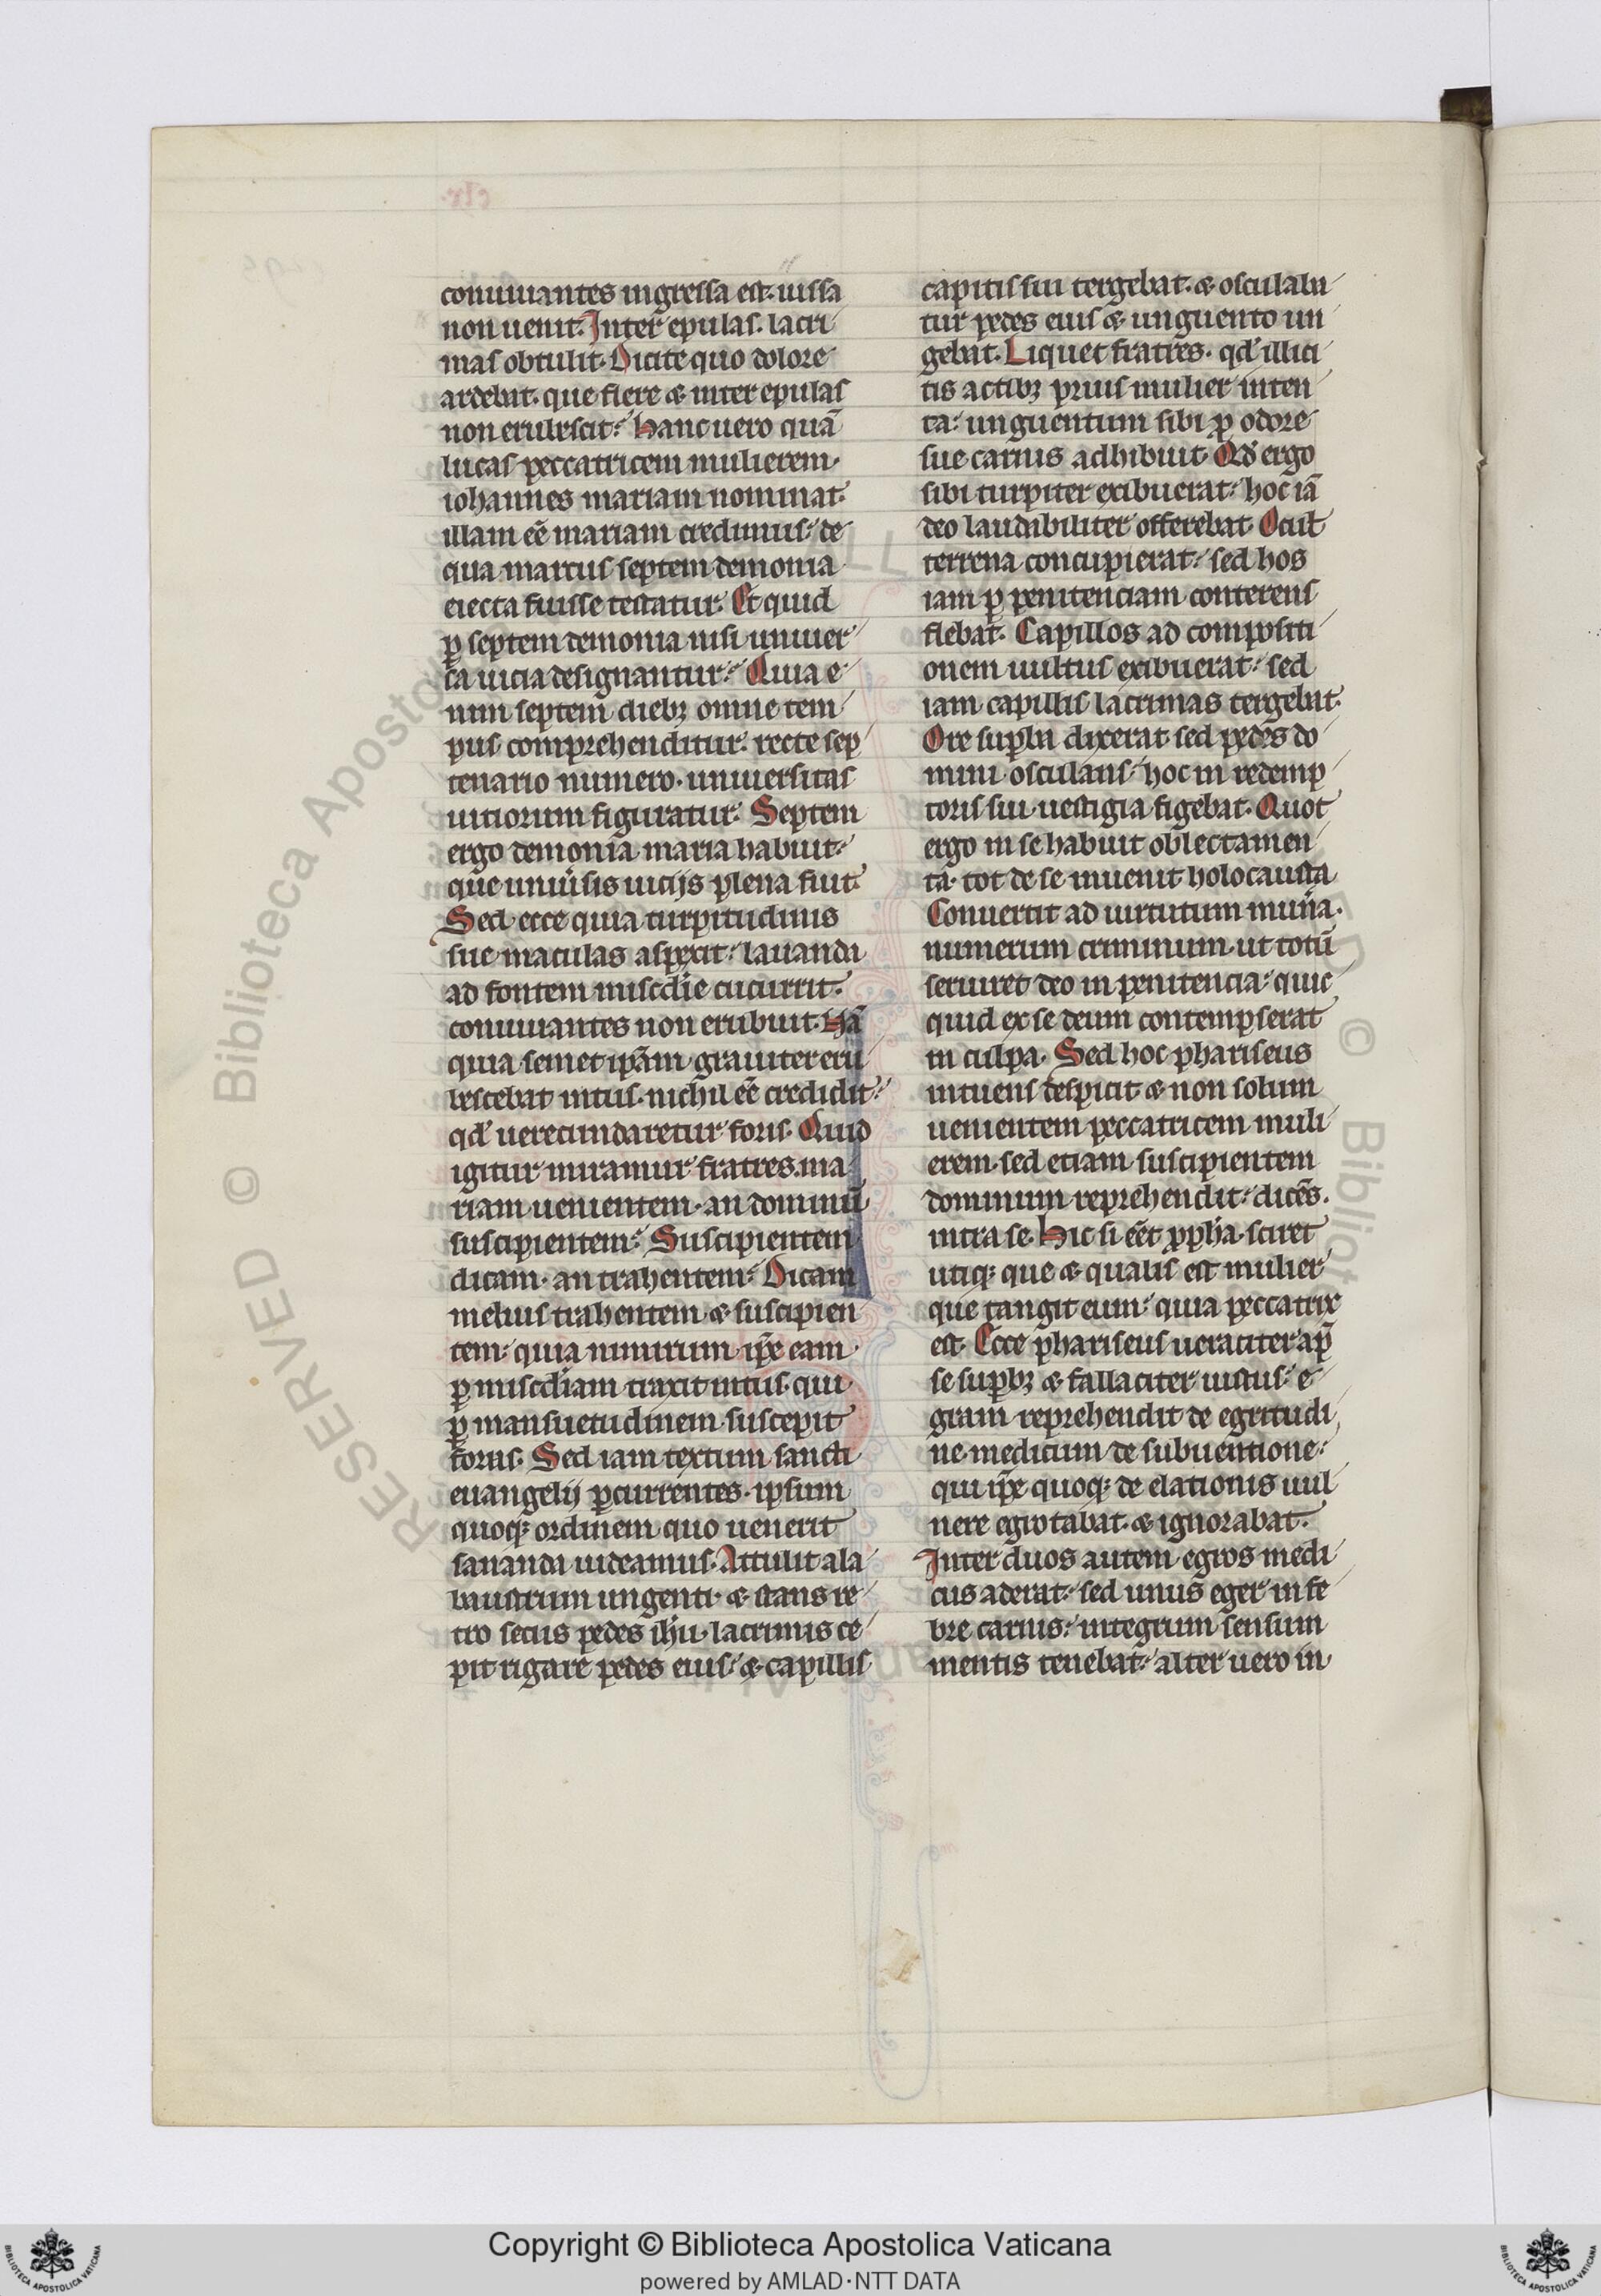 conuiuantes ingressa est. iussa
non uenit. Inter epulas. lacri
mas obtulit. Dicite quo dolore
ardebat. que flere & inter epulas
non erubescit? Hanc uero quā
lucas peccatricem mulierem.
iohannes mariam nominat.
illam eē mariam credimus. de
qua marcus septem demonia
eiecta fuisse testatur. Et quid
ꝑ septem demonia nisi uniuer
sa uicia designantur? Quia e
nim septem diebꝫ omne tem
pus comprehenditur. recte sep
tenario numero. uniuersitas
uitiorum figuratur. Septem
ergo demonia maria habuit.
que uniũsis uicijs plena fuit.
Sed ecce quia turpitudinis
sue maculas aspexit. lauanda
ad fontem miscdie cucurrit.
conuiuantes non erubuit. Nā
quia semet ipām grauiter eru
bescebat intus. nichil eē credidit
qd' uerecundaretur foris. Quid
igitur miramur fratres. ma
riam uenientem. an dominū
suscipientem? Suscipientem
dicam. an trahentem? Dicam
melius trahentem & suscipien
tem. quia nimirum ip̄e eam
ꝑ miscdiam traxit intus. qui
ꝑ mansuetudinem suscepit
foris. Sed iam textum sancti
euangelij ꝑcurrentes. ipsum
quoqꝫ ordinem quo uenerit
sananda uideamus. Attulit ala
baustrum ungenti. & stans re
tro secus pedes ihū. lacrimis ce
pit rigare pedes eius. & capillis
capitis sui tergebat. & osculaba
tur pedes eius & unguento un
gebat. Liquet fratres. qd' illici
tis actibꝫ prius mulier inten
ta. unguentum sibi ꝓ odore
sue carnis adhibuit. Qd' ergo
sibi turpiter exibuerat. hoc iā
deo laudabiliter offerebat. Ocul'
terrena concupierat. sed hos
iam ꝑ penitenciam conterens
flebat. Capillos ad compositi
onem uultus exibuerat. sed
iam capillis lacrimas tergebat.
Ore suꝑba dixerat sed pedes do
mini osculans. hoc in redemp
toris sui uestigia figebat. Quot
ergo in se habuit oblectamen
ta. tot de se inuenit holocausta.
Conuertit ad uirtutum mun̄a.
numerum criminum. ut totū
seruiret deo in penitencia. quic
quid ex se deum contempserat
in culpa. Sed hoc phariseus
intuens despicit & non solum
uenientem peccatricem muli
erem. sed etiam suscipientem
dominum reprehendit. dicēs.
intra se. Hic si eēt ꝓpha. sciret
utiqꝫ que & qualis est mulier
que tangit eum. quia peccatrix
est. Ecce phariseus ueraciter ap̄
se suꝑbꝫ & fallaciter iustus. e
gram reprehendit de egritudi
ne. medicum de subuentione.
qui ip̄e quoqꝫ de elationis uul
nere egrotabat. & ignorabat.
Inter duos autem egros medi
cus aderat. sed unus eger in fe
bre carnis. integrum sensum
mentis tenebat. alter uero in
RESERVED © Biblioteca Aposto
© Bibliot
Copyright © Biblioteca Apostolica Vaticana
powered by AMLAD·NTT DATA
BIBLIOTECA APOSTOLICA VATICANA
BIBLIOTECA APOSTOLICA VATICANA